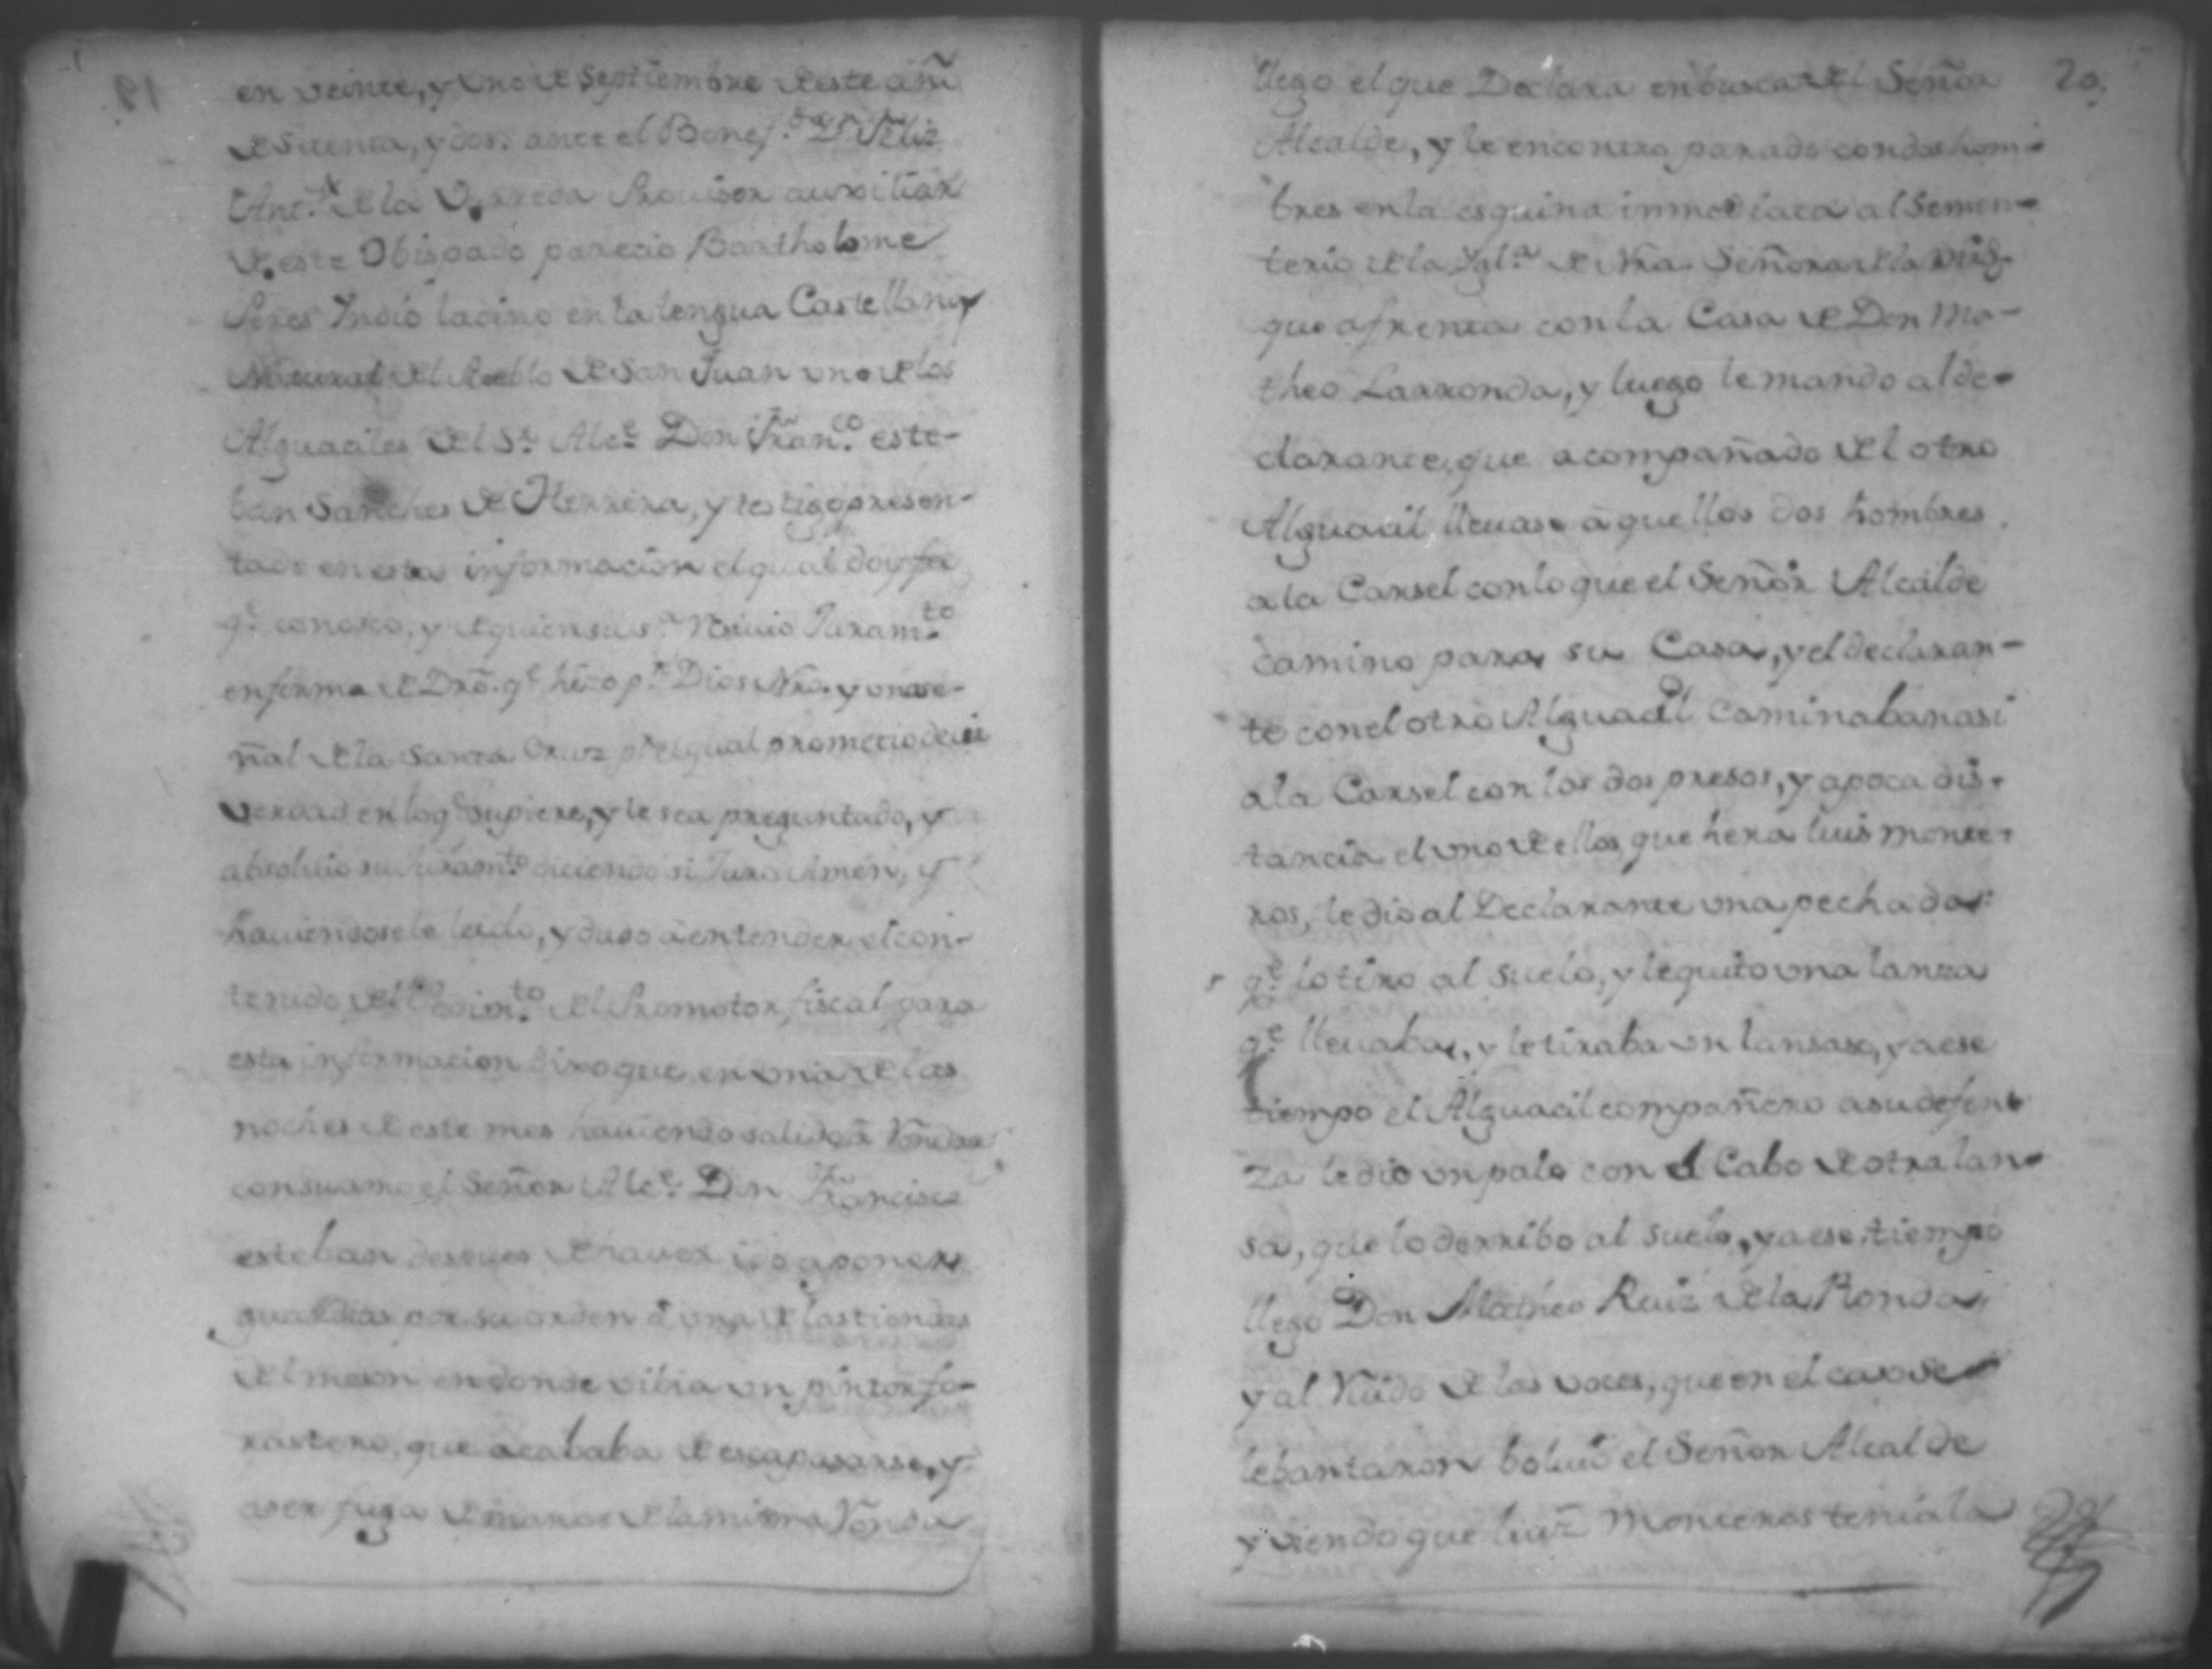 en veinte, y uno de Septiembre de este año
de setenta, y dos. ante el Benef.do Dr. Feliz
Ant.o de la Varreda Provisor auxiliar
de este Obispado parecio Bartholome
Peres Yndio ladino en la lengua Castellana
Natural del Pueblo de San Juan uno de los
Alguaciles del Sr. Alce. Don Fran.co este-
ban Sanches de Herrera, y testigo presen-
tado en esta informacion el qual doy fee
q.e conosco, y de quien su s.a Resivio Juram.to
en forma de Dro. q.e hizo p.r Dios Nro. y una se-
ñal de la Santa Cruz p.r el qual prometio decir
verdad en lo q.e supiere, y le sea preguntado, y
absolvio su Juram.to diciendo si Juro Amen, y
haviendosele leido, y dado a entender el con-
tenido del Pedim.to del Promotor fiscal para
esta informacion dixo que en una de las
noches de este mes haviendo salido a Rondar
con su amo el Señor Alce. Don Francisco
esteban despues de haver ido a poner
guardias por su orden a una de las tiendas
del meson en donde vibia un pintor fo-
rastero, que acababa de escapasarse, y
aser fuga de manos de la misma Ronda
20,
llego el que Declara en busca del Señor
Alcalde, y le encontro parado con dos hom-
bres en la esquina immediata al Semen-
terio de la Ygl.a de Nra. Señora de la
que afrenta con la Casa de Don Ma-
theo Larronda, y luego le mando al de-
clarante, que acompañado del otro
Alguacil, llevase a quellos dos hombres
a la Carsel con lo que el Señor Alcalde
camino para su Casa, y el declaran-
te con el otro Alguacil caminaban asi
a la Carsel con los dos presos, y a poca dis-
tancia el uno de ellos, que hera luis monte-
ros, le dio al Declarante una pechada
q.e lo tiro al suelo, y le quito una lanza
q.e llevaba, y le tiraba un lansaso, y a ese
tiempo el Alguacil compañero a su defen-
za le dio un palo con el Cabo de otra lan-
sa, que lo derribo al suelo, y a ese tiempo
llego Don Matheo Ruiz de la Ronda,
y al Ruido de las voces, que en el caso se
lebantaron bolvio el Señor Alcalde
y viendo que luiz Monteros tenia la